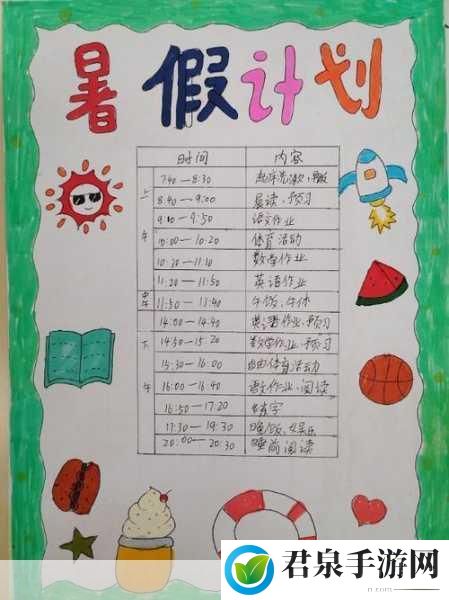 暑假计划
时间 内容
7:40—8:30 起床洗漱、早饭
8:40—9:00 晨读、预习
9:10—9:50 语文作业
10:00—10:20 体育活动
10:30—11:10 数学作业
11:20—11:50 英语作业
11:50—13:40 午饭、午休
14:00—14:40 英语作业、预习
14:50—15:20 数学作业、预习
15:30—16:00 自由体育活动
16:00—16:40 语文作业、阅读
16:50—17:20 练字
17:30—19:30 晚饭、娱乐
20:00—20:30 睡前阅读
上午
中午
下午
君泉手游网